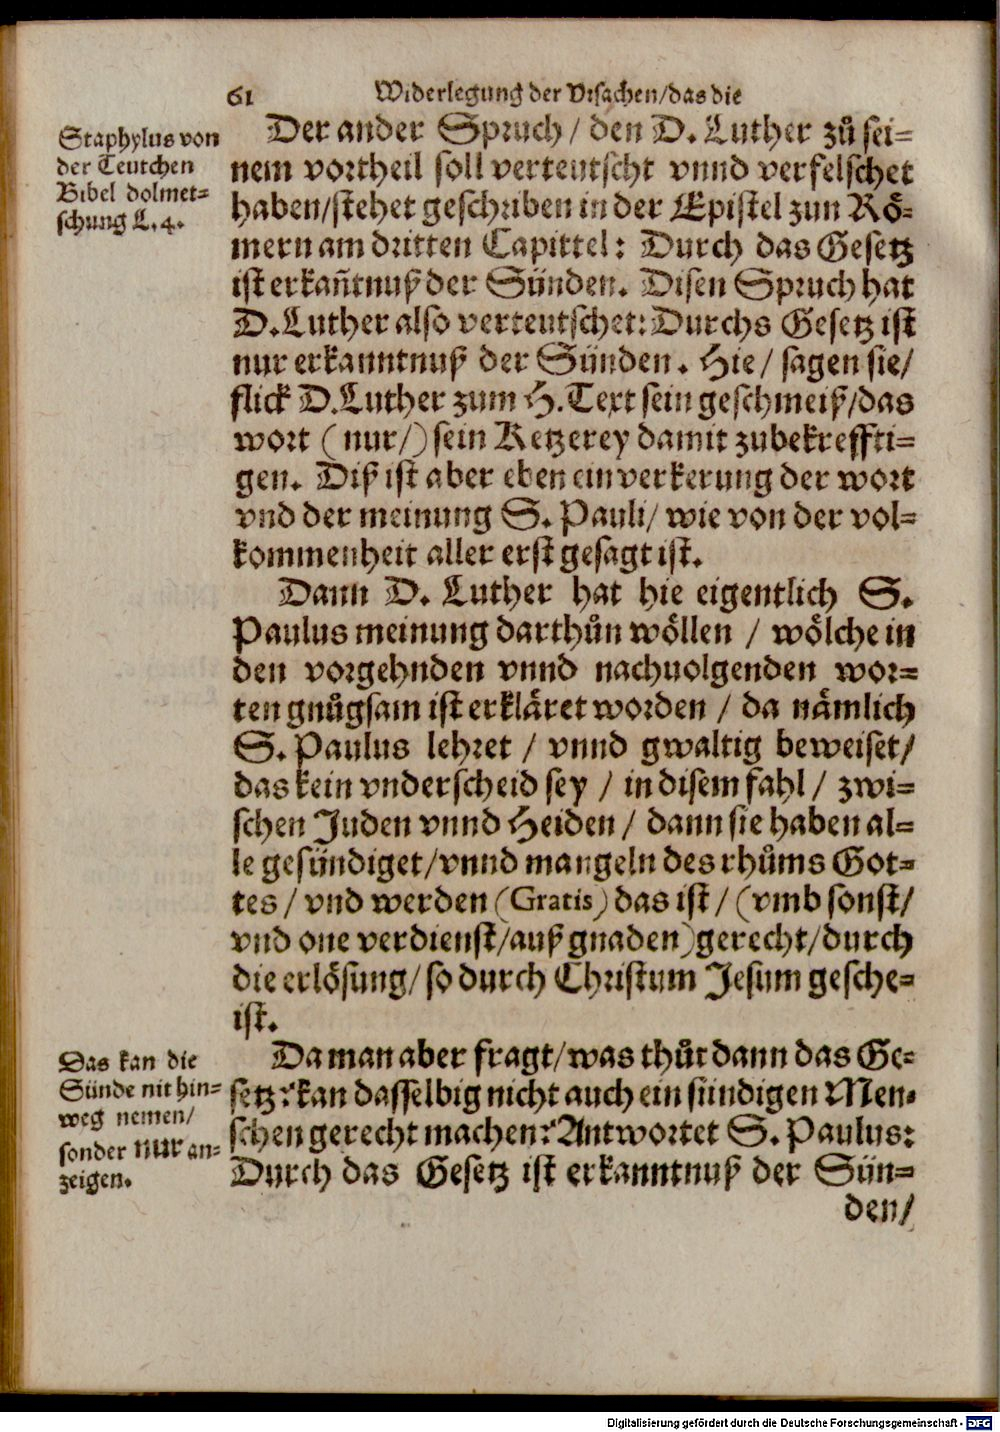 61 Widerlegung der Vrsachen/das die
Staphylus von
der Teutchen
Bibel dolmet=
schung L.4.
Der ander Spruch / den D. Luther zů sei=
nem vortheil soll verteutscht vnnd verfelschet
haben/stehet geschriben in der Epistel zun Rö=
mern am dritten Capittel: Durch das Gesetz
ist erkañtnuß der Sünden. Disen Spruch hat
D.Luther also verteutschet: Durchs Gesetz ist
nur erkanntnuß der Sünden. Hie/ sagen sie/
flick D.Luther zum H.Text sein geschmeiß/das
wort (nur/) sein Ketzerey damit zubekreffti=
gen. Diß ist aber eben ein verkerung der wort
vnd der meinung S. Pauli/ wie von der vol=
kommenheit aller erst gesagt ist.
Dann D. Luther hat hie eigentlich S.
Paulus meinung darthůn wöllen / wölche in
den vorgehnden vnnd nachuolgenden wor=
ten gnůgsam ist erkläret worden / da nämlich
S. Paulus lehret / vnnd gwaltig beweiset/
das kein vnderscheid sey / in disem fahl / zwi=
schen Juden vnnd Heiden / dann sie haben al=
le gesündiget/vnnd mangeln des rhůms Got=
tes / vnd werden (Gratis) das ist / (vmb sonst/
vnd one verdienst/auß gnaden) gerecht/durch
die erlösung/ so durch Christum Jesum gesche=
ist.
Das kan die
Sünde nit hin=
weg nemen/
sonder nur an=
zeigen.
Da man aber fragt/was thůt dann das Ge=
setz? kan dasselbig nicht auch ein sündigen Men=
schen gerecht machen? Antwortet S. Paulus:
Durch das Gesetz ist erkanntnuß der Sün=
den/
Digitalisierung gefördert durch die Deutsche Forschungsgemeinschaft - DFG